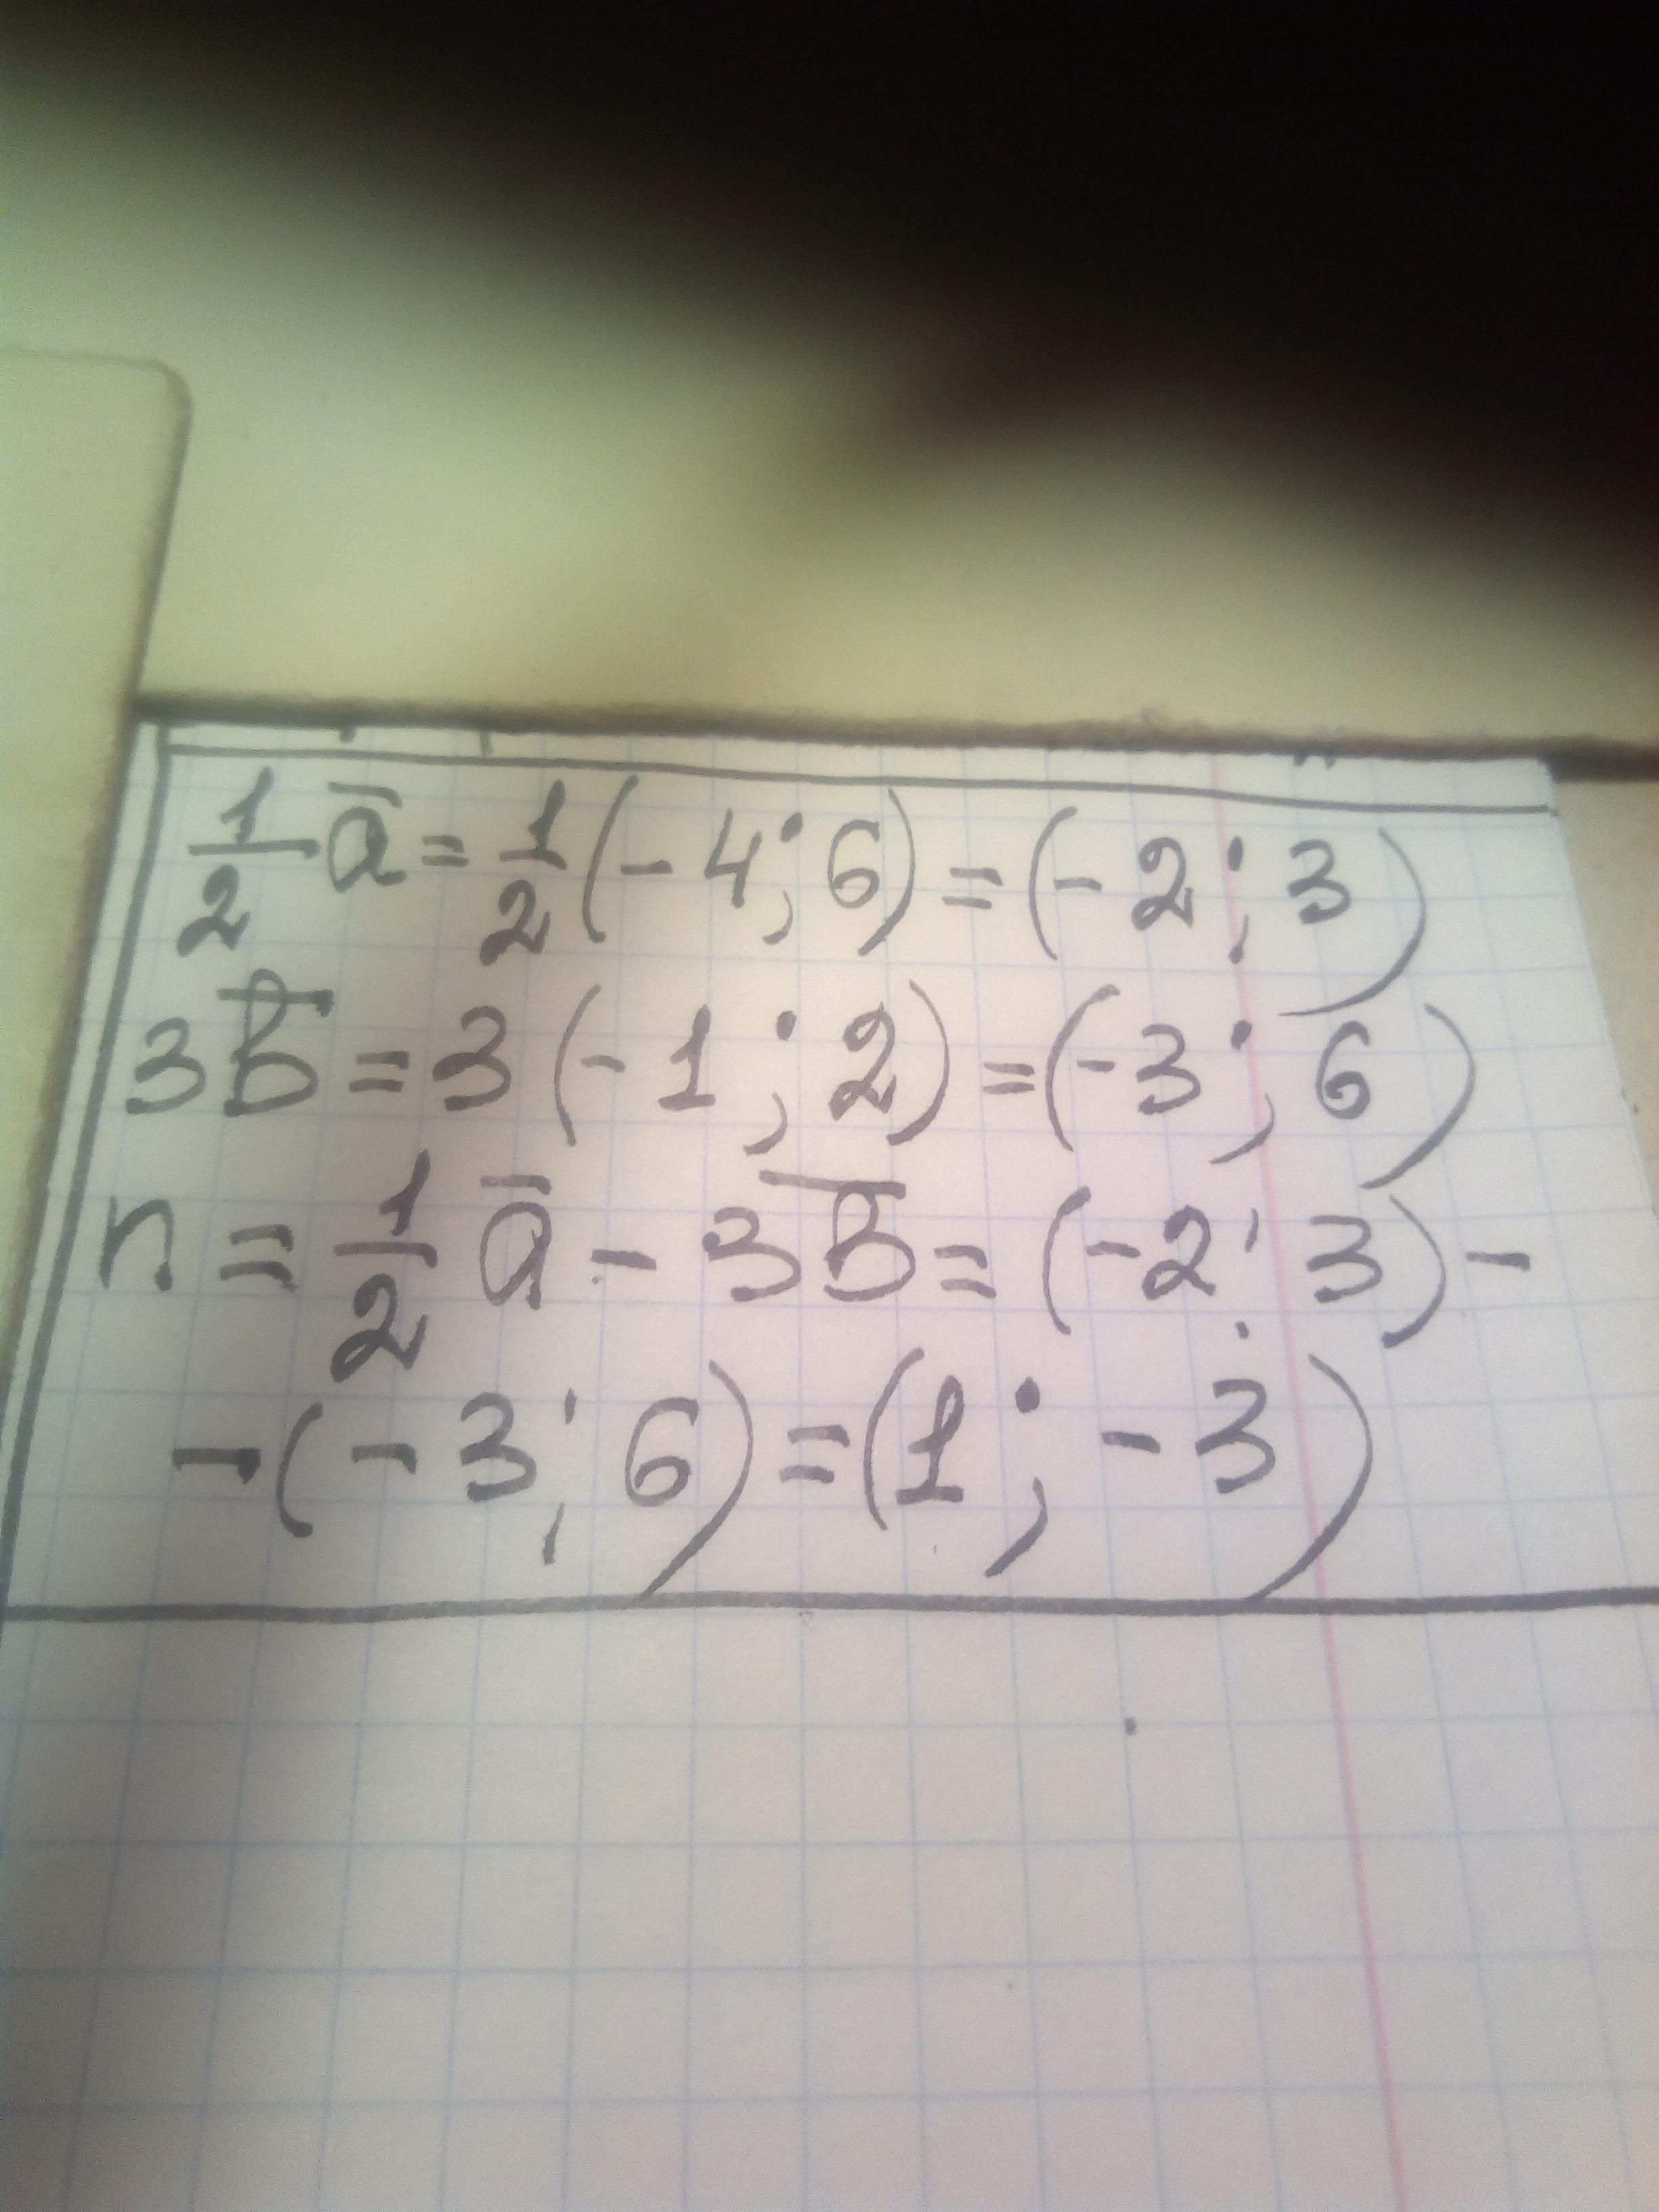 1/2 a̅ = 1/2 (-4; 6) = (-2; 3)
3B̅ = 3 (-1; 2) = (-3; 6)
n = 1/2 a̅ - 3B̅ = (-2; 3) -
- (-3; 6) = (1; -3)